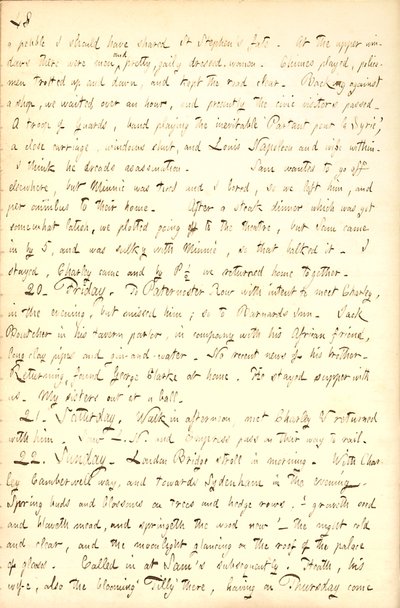 48
a pebble I should have shared St Stephen's fate. At the upper win-
dows there were men, and pretty, gaily dressed women. Chimes played, police-
men trotted up and down, and kept the road clear. Backing against
a shop, we waited over an hour, and presently the civic visitors passed.
A troop of guards, band playing the inevitable "Partant pour la Syrie,"
a close carriage, windows shut, and Louis Napoleon and wife within.
I think he dreads assassination. Sam wanted to go off
elsewhere, but Minnie was tired and I bored, so we left him, and
per omnibus to their home. After a steak dinner which was got
somewhat lateish, we plotted going off to the theatre, but Sam came
in by 5, and was sulky with Minnie, so that balked it. I
stayed, Charley came and by 8 ½ we returned home together.
20. Friday. To Paternoster Row with intent to meet Charley,
in the evening, but missed him; so to Barnards Inn. Jack
Boutcher in his tavern parlor, in company with his African friend,
long clay pipes and gin-and-water. No recent news of his brother.
Returning, found George Clarke at home. He stayed supper with
us. My sisters out at a ball.
21. Saturday. Walk in afternoon, met Charley & returned
with him. L. N. and Empress pass on their way to rail.
22. Sunday. London Bridge stroll in morning. With Char-
ley Camberwell way, and towards Sydenham in the evening.
Spring buds and blossoms on trees and hedge rows. "groweth seed
and bloweth mead, and springeth the wood now"! — the night cold
and clear, and the moonlight glancing on the roof of the palace
of glass. Called in at Sam's subsequently. Heath, his
wife, also the blooming "Tilly" there, having on Thursday come